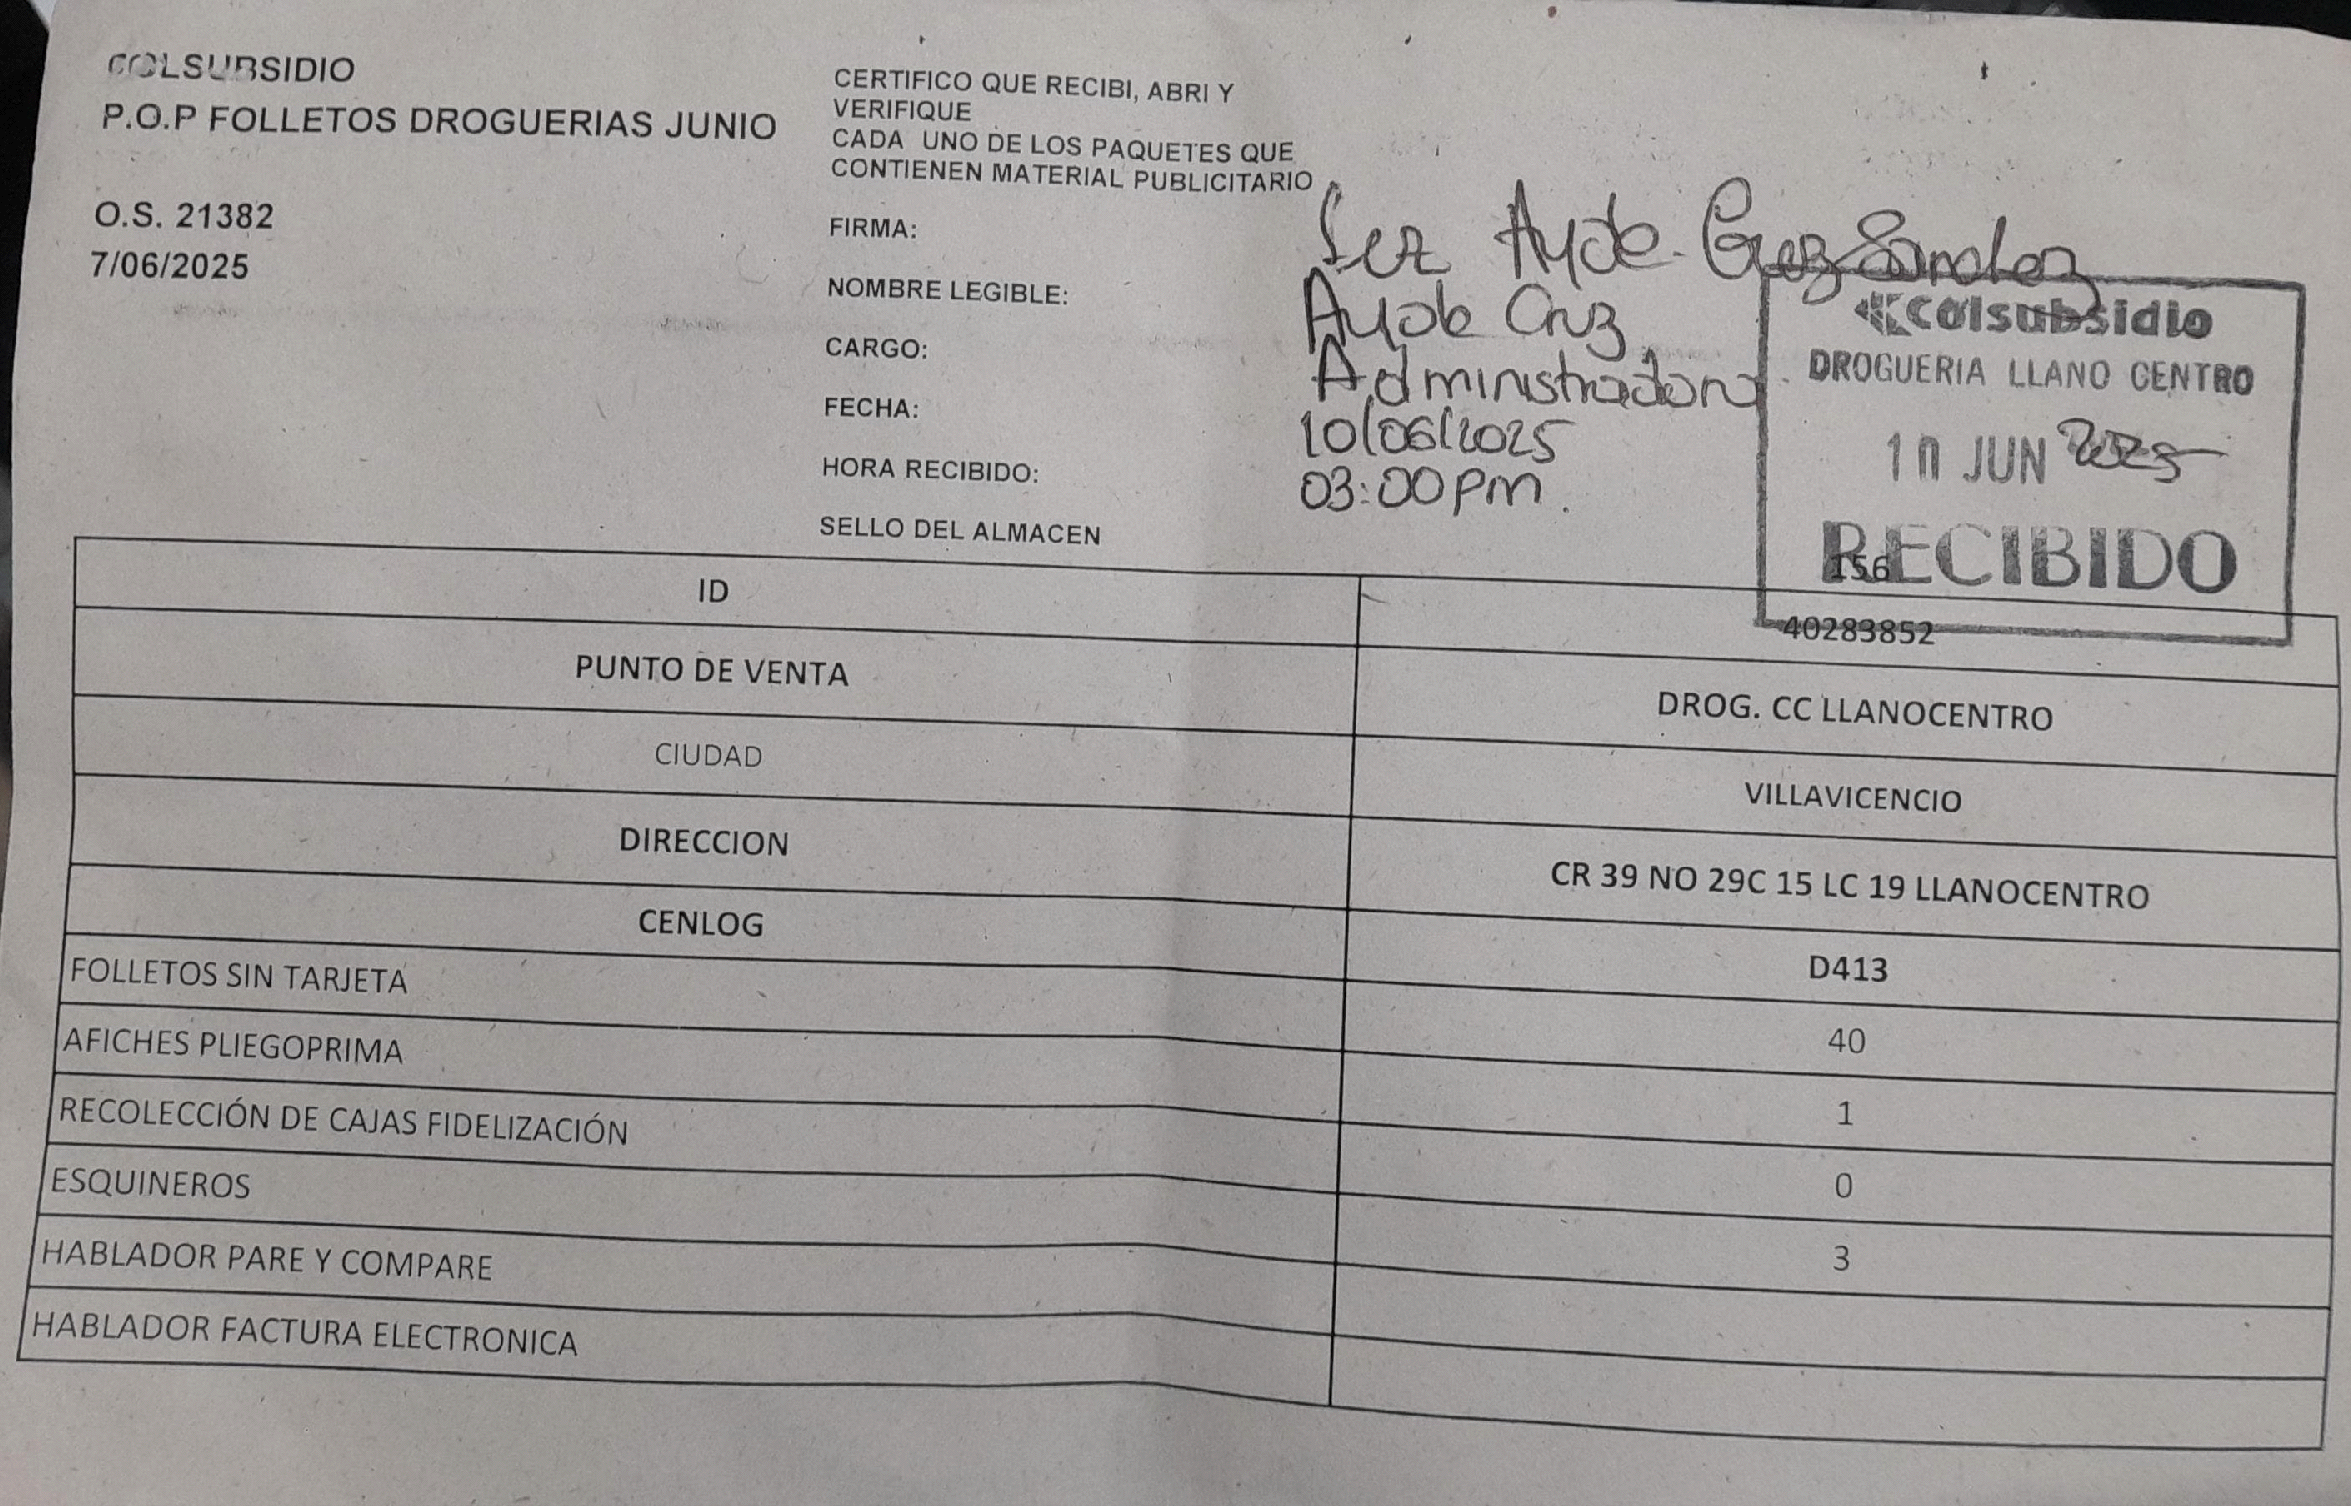 COLSUBSIDIO
P.O.P FOLLETOS DROGUERIAS JUNIO
O.S. 21382
7/06/2025
CERTIFICO QUE RECIBI, ABRI Y
VERIFIQUE
CADA UNO DE LOS PAQUETES QUE
CONTIENEN MATERIAL PUBLICITARIO
FIRMA: Ayde Cruz Sanchez
NOMBRE LEGIBLE: Ayde Cruz
CARGO: Administradora
FECHA: 10/06/2025
HORA RECIBIDO: 03:00 pm.
SELLO DEL ALMACEN
colsubsidio
DROGUERIA LLANO CENTRO
10 JUN 2025
RECIBIDO
156
ID 40283852
PUNTO DE VENTA DROG. CC LLANOCENTRO
CIUDAD VILLAVICENCIO
DIRECCION CR 39 NO 29C 15 LC 19 LLANOCENTRO
CENLOG D413
FOLLETOS SIN TARJETA 40
AFICHES PLIEGOPRIMA 1
RECOLECCIÓN DE CAJAS FIDELIZACIÓN 0
ESQUINEROS 3
HABLADOR PARE Y COMPARE
HABLADOR FACTURA ELECTRONICA